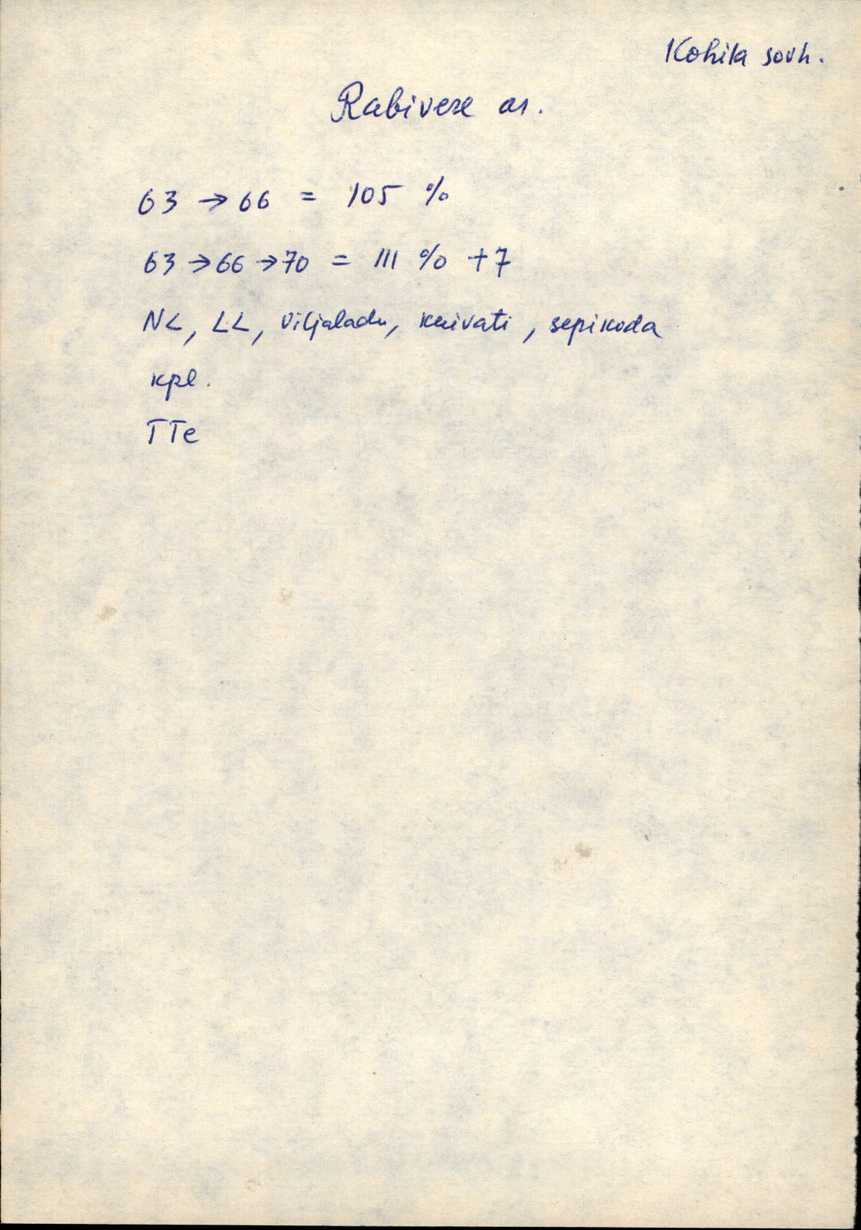 Kohila sovh.
Rabivere as.
63 → 66 = 105 %
63 → 66 → 70 = 111 % +7
NL, LL, viljaladu, kuivati, sepikoda
kpl.
TTe